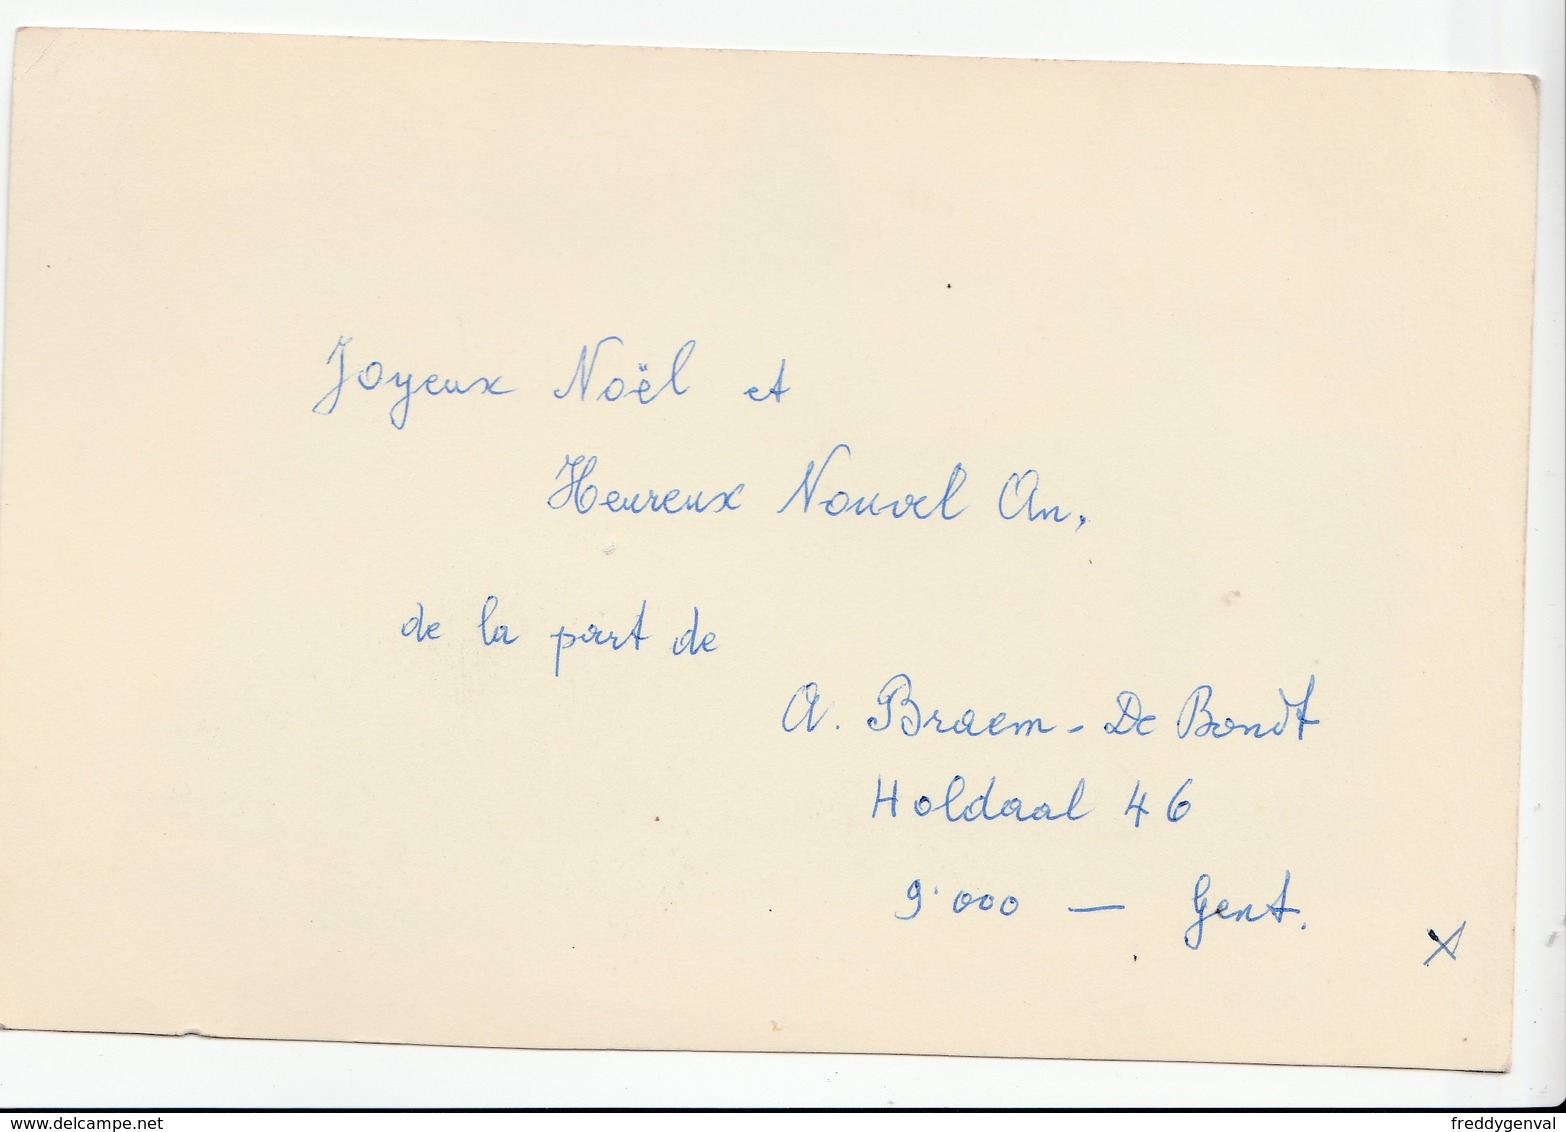 Joyeux Noël et
Heureux Nouvel An,
de la part de
A. Braem - De Bondt
Holdaal 46
9.000 — Gent.
www.delcampe.net
freddygenval